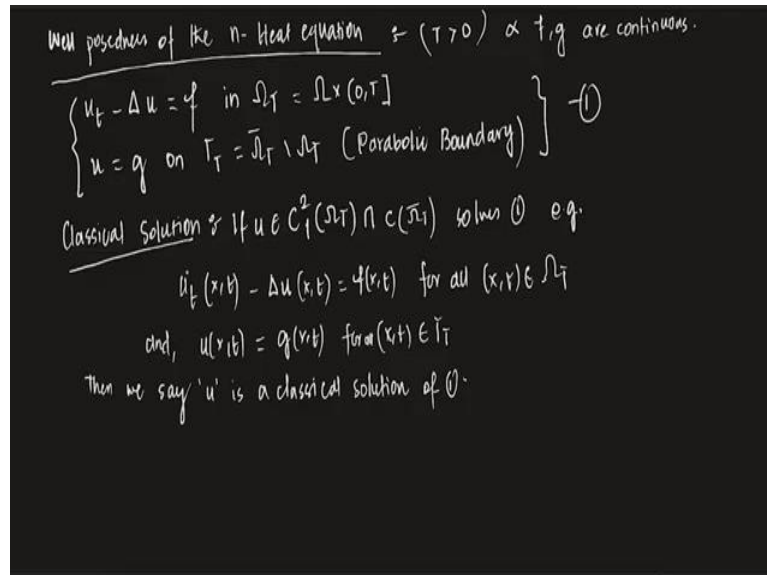 Well posedness of the n- Heat equation :- (T>0) & f,g are continuous.
{ u_t - Δu = f in Ω_T = Ω×(0,T]
u = g on Γ_T = Ω̄_T \ Ω_T (Parabolic Boundary) } -①
Classical Solution :- If u ∈ C²₁(Ω_T) ∩ C(Ω̄_T) solves ① e.g.
u_t (x,t) - Δu(x,t) = f(x,t) for all (x,t) ∈ Ω_T
and, u(x,t) = g(x,t) for all (x,t) ∈ Γ_T
Then we say 'u' is a classical solution of ①.